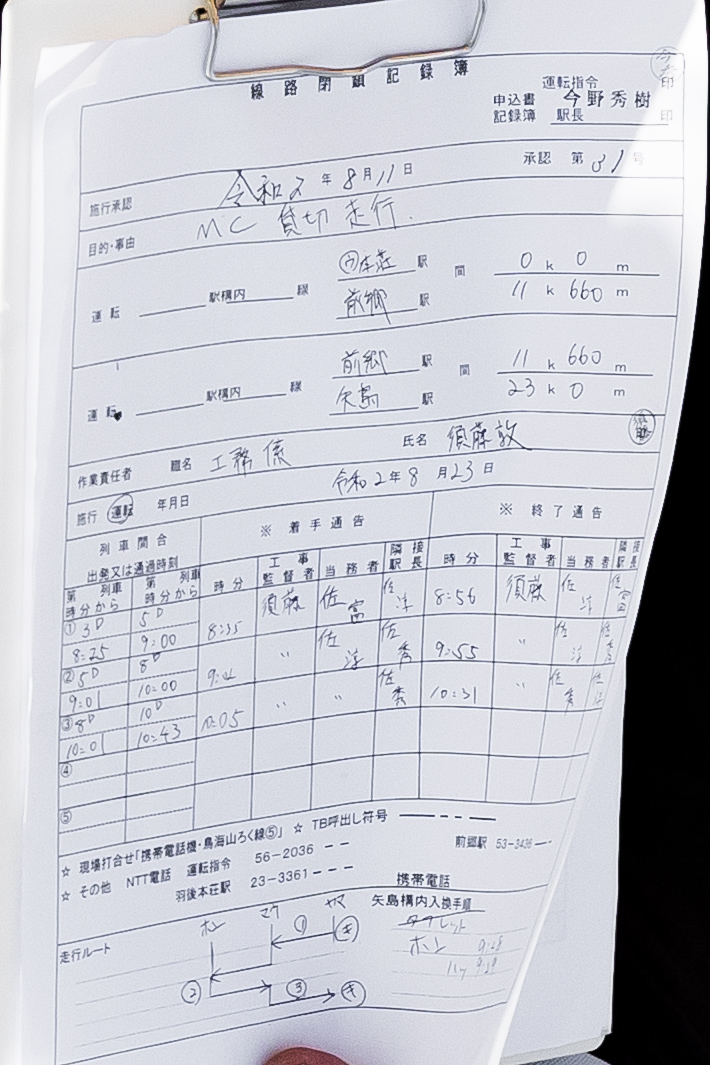 線路閉鎖記録簿
運転指令
申込書 今野秀樹
記録簿 駅長 印
承認 第 31 号
施行承認 令和2年8月11日
目的・事由 MC 貸切 走行.
運転 駅構内 線 ウ本荘 駅 間 0 k 0 m
前郷 駅 11 k 660 m
運転 駅構内 線 前郷 駅 間 11 k 660 m
矢島 駅 23 k 0 m
作業責任者 職名 工務係 氏名 須藤敦
施行 運転 年月日 令和2年8月23日
列車間合 ※ 着手通告 ※ 終了通告
出発又は通過時刻
第 列車時分から 第 列車時分から 時分 工事監督者 当務者 隣接駅長 時分 工事監督者 当務者 隣接駅長
① 3D 5D 8:35 須藤 佐富 佐 8:56 須藤 佐 佐富
8:25 9:00
② 5D 8D 佐 佐秀 9:55 〃 佐 佐秀
9:01 10:00
③ 8D 10D 10:05 〃 〃 佐秀 10:31 〃 佐秀 佐
10:01 10:43
④
⑤
☆ 現場打合せ「携帯電話機・鳥海山ろく線⑤」 ☆ TB呼出し符号 ― ― ― ―
☆ その他 NTT電話 運転指令 56-2036 -- 前郷駅 53-3436 --
羽後本荘駅 23-3361 --- 携帯電話
走行ルート ホン マウ ヤマ 矢島構内入換手順
① キ タブレット
ホン 9:28
② ③ キ 9:29